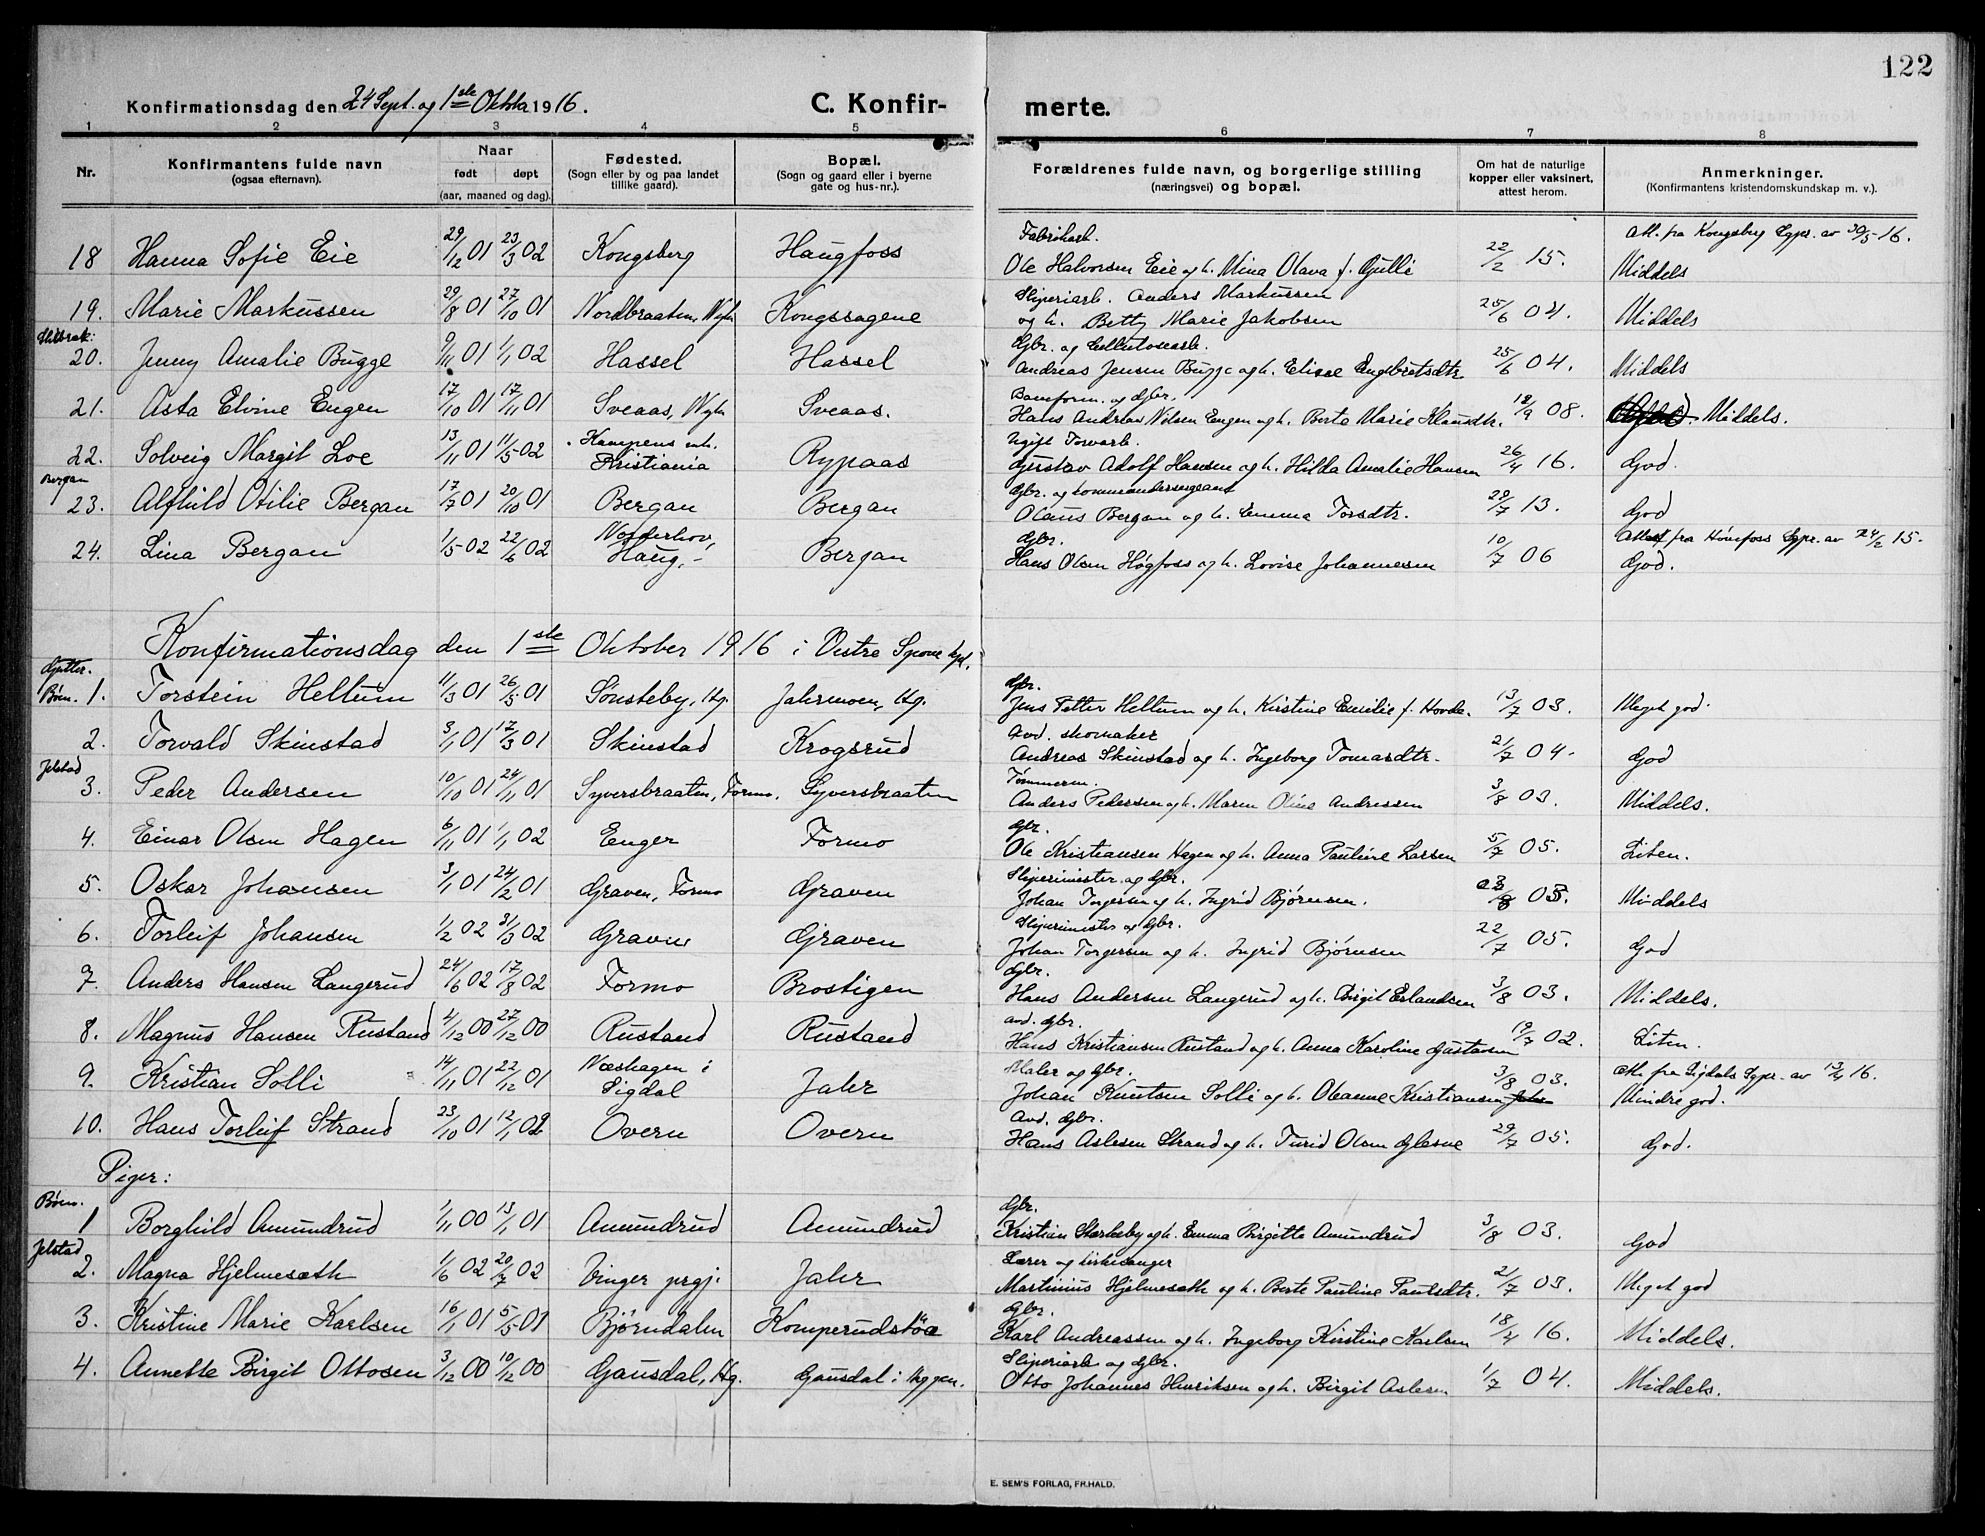 122
Konfirmationsdag den 24 Sept. og 1ste Oktober 1916. C. Konfirmerte.
1 2 3 4 5 6 7 8
Nr. Konfirmantens fulde navn (ogsaa efternavn). Naar født døpt (aar, maaned og dag). Fødested. (Sogn eller by og paa landet tillike gaard). Bopæl. (Sogn og gaard eller i byerne gate og hus-nr.). Forældrenes fulde navn, og borgerlige stilling (næringsvei) og bopæl. Om hat de naturlige kopper eller vaksinert, attest herom. Anmerkninger. (Konfirmantens kristendomskundskap m. v.).
Fabrikarb. Att. fra Kongsberg Sgpr. av 30/5-16.
18 Hanna Sofie Eie 29/12 01 23/3 02 Kongsberg Haugfoss Ole Halvorsen Eie og h. Mina Olava f. Gulli 22/2 15. Middels
Sliperiarb. Anders Markussen
19. Marie Markussen 29/8 01 27/10 01 Nordbraaten, Kongssagene og h. Betty Marie Jakobsen 25/6 04. Middels
Gbr. og Cellulosearb.
20. Jenny Amalie Bugge 9/11 01 1/1 02 Hassel Hassel Andreas Jensen Bugge og h. Elise Engebretsdtr 25/6 04. Middels
Gbr.
21. Asta Elvine Engen 17/10 01 17/11 01 Sveaas, Sveaas. Hans Andreas Nilsen Engen og h. Berte Marie 18/9 08. Middels.
Ugift
22. Solveig Margit Loe 13/11 01 11/5 02 Kampens Kristiania Rypaas Gustav Adolf Hansen og h. Hilda Amalie Hansen 26/4 16. God.
Bergan Gbr. og kommandersergeant
23. Alfhild Otilie Bergan 17/7 01 20/10 01 Bergan Bergan Olaus Bergan og h. Emma Torsdtr. 29/7 13. God
Norderhov, Gbr. Attest fra Hønefoss Sgpr. av 24/2 15.
24. Lina Bergan 1/5 02 22/6 02 Haug. - Bergan Hans Olsen Høgfoss og h. Lovise Johannesen 10/7 06 God.
Konfirmationsdag den 1ste Oktober 1916 i Vestre Spone kpl.
Gutter. Gbr.
Bøen. 1. Torstein Heltum 11/3 01 26/5 01 Sønsteby, Hg. Jahrmoen, Hg. Jens Petter Heltum og h. Kirstine Emilie f. Hovde. 13/7 03. Meget god.
Avd. skomaker
2. Torvald Skinstad 3/1 01 17/3 01 Skinstad Krogsrud Andreas Skinstad og h. Ingeborg Tomasdtr. 21/7 04. God
Jelstad Tømmerm.
3. Peder Andersen 10/10 01 24/11 01 Syversbraaten, Formo. Syversbraaten Anders Pedersen og h. Maren Oline Andressen 3/8 03. Middels.
Gbr.
4. Einar Olsen Hagen 6/11 01 1/1 02 Enger Formo Ole Kristiansen Hagen og h. Anna Pauline Larsen 5/7 05. Liten.
Sliperimester og Gbr.
5. Oskar Johansen 3/1 01 24/2 01 Graven, Formo Graven Johan Torgersen og h. Ingrid Bjørnsen. 3/8 03. Middels
Sliperimester og Gbr.
6. Torleif Johansen 1/2 02 31/3 02 Graven Graven Johan Torgersen og h. Ingrid Bjørnsen 22/7 05. God
Gbr.
7. Anders Hansen Langerud 24/6 02 17/8 02 Formo Brostigen Hans Andersen Langerud og h. Birgit Erlandsen 3/8 03. Middels.
avd. Gbr.
8. Magnus Hansen Rustand 4/12 00 27/12 00 Rustand Rustand Hans Kristiansen Rustand og h. Anna Karoline Gustavsen 19/7 02. Liten.
Næshagen i Maler og Gbr. Att. fra Sigdals Sgpr. av 13/4 16.
9. Kristian Solli 14/11 01 22/12 01 Sigdal Jahr Johan Knutsen Solli og h. Oleanne Kristiansen 3/8 03. Mindre god.
Avd. Gbr.
10. Hans Torleif Strand 23/10 01 12/1 02 Overn Overn Hans Aslesen Strand og h. Turid Olsen Glesne 29/7 05. God.
Piger:
Bøen. Gbr.
1 Borghild Amundrud 1/11 00 13/1 01 Amundrud Amundrud Kristian Stærkeby og h. Emma Birgitte Amundrud 3/8 03. God
Jelstad Lærer og kirkesanger
2. Magna Hjelmesæth 1/6 02 20/7 02 Vinger prgj. Jahr Martinius Hjelmesæth og h. Berte Pauline Paulsdtr. 21/7 03. Meget god
Gbr.
3. Kristine Marie Karlsen 16/1 01 5/5 01 Bjørndalen Komperudstøa Karl Andreassen og h. Ingeborg Kirstine Karlsen 18/4 16. Middels.
Sliperiarb og Gbr.
4. Annette Birgit Ottosen 3/12 00 10/12 00 Gausdal, Hg. Gausdal i Uggen. Otto Johannes Henriksen og h. Birgit Aslesen 1/7 04. Middels.
E. SEM'S FORLAG, FR.HALD.